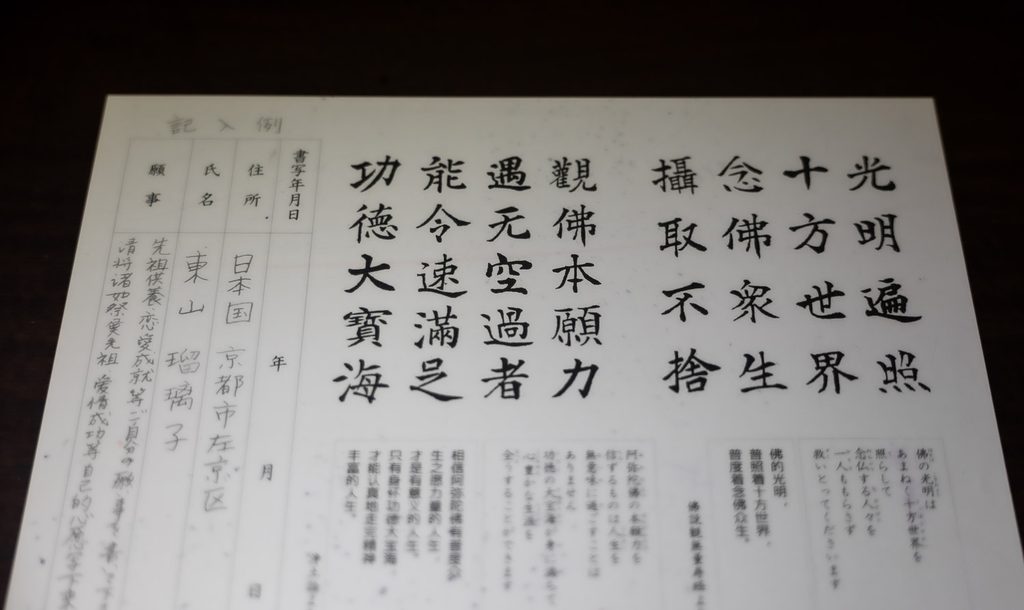 光明遍照
十方世界
念佛衆生
攝取不捨
觀佛本願力
遇无空過者
能令速滿足
功德大寶海
佛の光明は
あまねく十方世界を
照らして
念仏する人々を
一人ももらさず
救いとってくださいます
佛的光明,
普照着十方世界,
普度着念佛众生。
阿弥陀佛の本願力を
信ずるものは人生を
無意味に過ごすことは
ありません
功徳の大宝海が身に満ちて
心豊かな生活を
全うすることができます
相信阿弥陀佛有普度众
生之愿力量的人生,
才是有意义的人生。
只有身怀功德大宝海,
才能认真地走完精神
丰富的人生。
記入例
書写年月日
年
月
日
住所
日本国 京都市左京区
氏名
東山 瑠璃子
願事
先祖供養・恋愛成就等ご自分の願い事を書いて下
请将诸如祭奠先祖 爱情成功等自己的心愿写下来